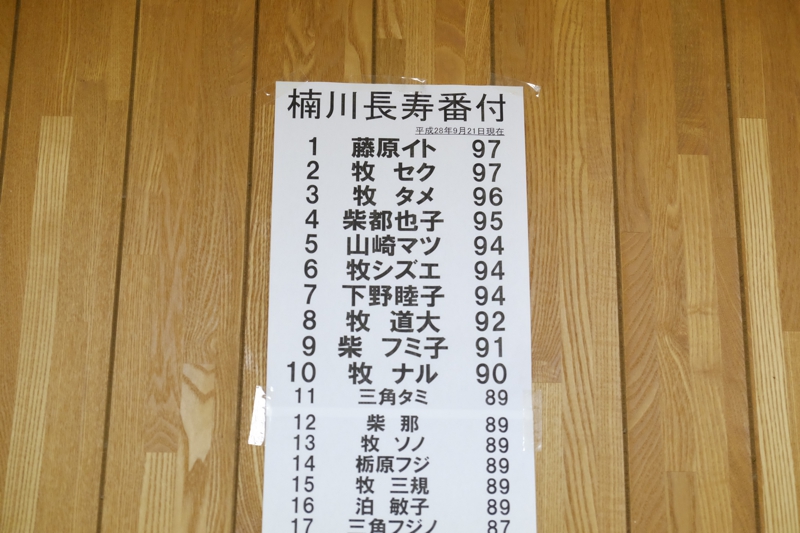 楠川長寿番付
平成28年9月21日現在
1 藤原イト 97
2 牧 セク 97
3 牧 タメ 96
4 柴都也子 95
5 山崎マツ 94
6 牧シズエ 94
7 下野睦子 94
8 牧 道大 92
9 柴 フミ子 91
10 牧 ナル 90
11 三角タミ 89
12 柴 那 89
13 牧 ソノ 89
14 栃原フジ 89
15 牧 三規 89
16 泊 敏子 89
17 三角フジノ 87